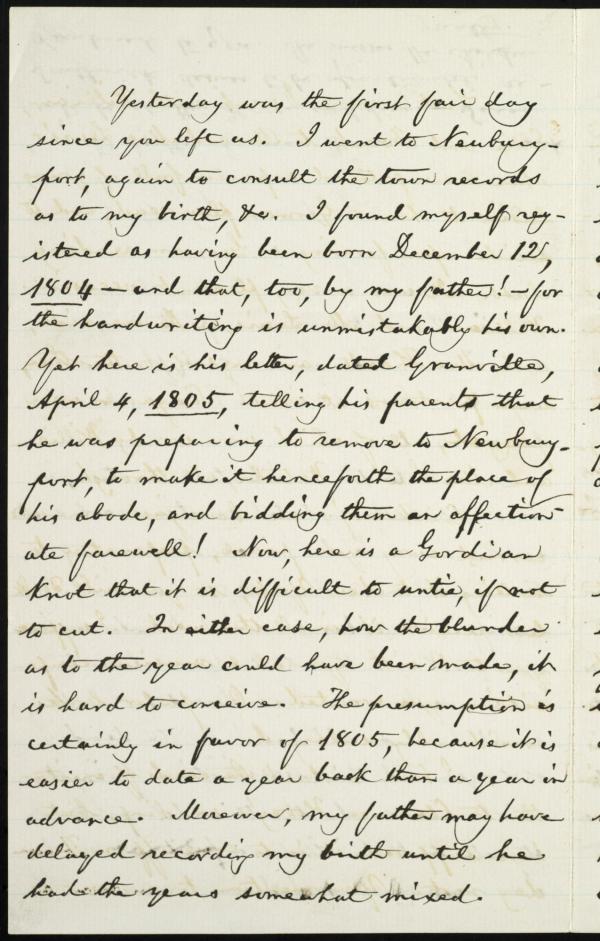 Yesterday was the first fair day
since you left us. I went to Newbury-
port, again to consult the town records
as to my birth, &c. I found myself reg-
istered as having been born December 12,
1804 — and that, too, by my father! — for
the handwriting is unmistakably his own.
Yet here is his letter, dated Granville,
April 4, 1805, telling his parents that
he was preparing to remove to Newbury-
port, to make it henceforth the place of
his abode, and bidding them an affection-
ate farewell! Now, here is a Gordian
Knot that it is difficult to untie, if not
to cut. In either case, how the blunder
as to the year could have been made, it
is hard to conceive. The presumption is
certainly in favor of 1805, because it is
easier to date a year back than a year in
advance. Moreover, my father may have
delayed recording my birth until he
had the years somewhat mixed.